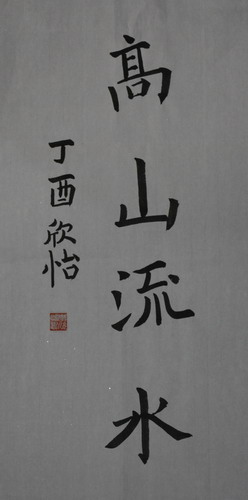 髙山流水
丁酉欣怡